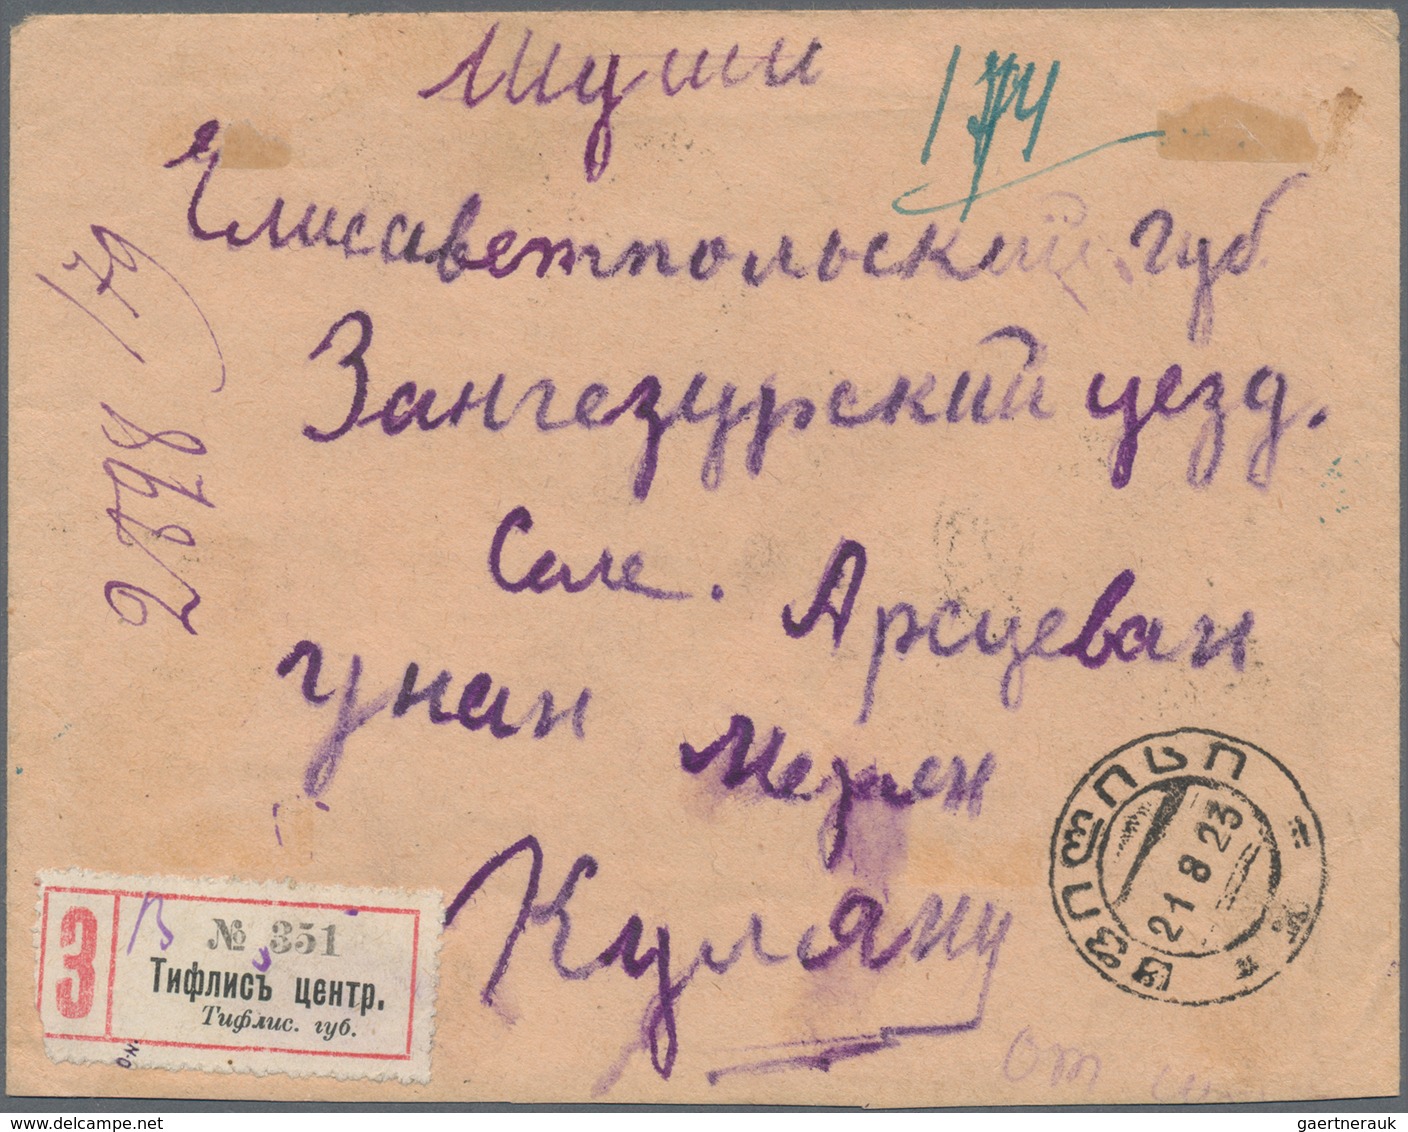 Шуши
174
Елисаветпольский губ.
Зангезурский уезд.
Селе. Арцеван
гунан Мезлен
Куляну
2898 / 179
З
В
№ 351
Тифлисъ центр.
Тифлис. губ.
ᲢᲤᲘᲚᲘᲡᲘ
21 8 23
от
gaertnerauk